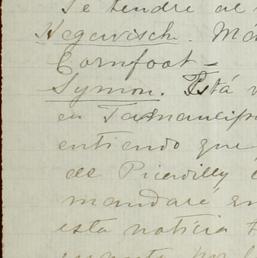 Te tendré al
Hegewisch. Má
Cornfoot-
Symon. Está v
en Tamaulip
entiendo que
de Picadilly
mandaré en
esta noticia